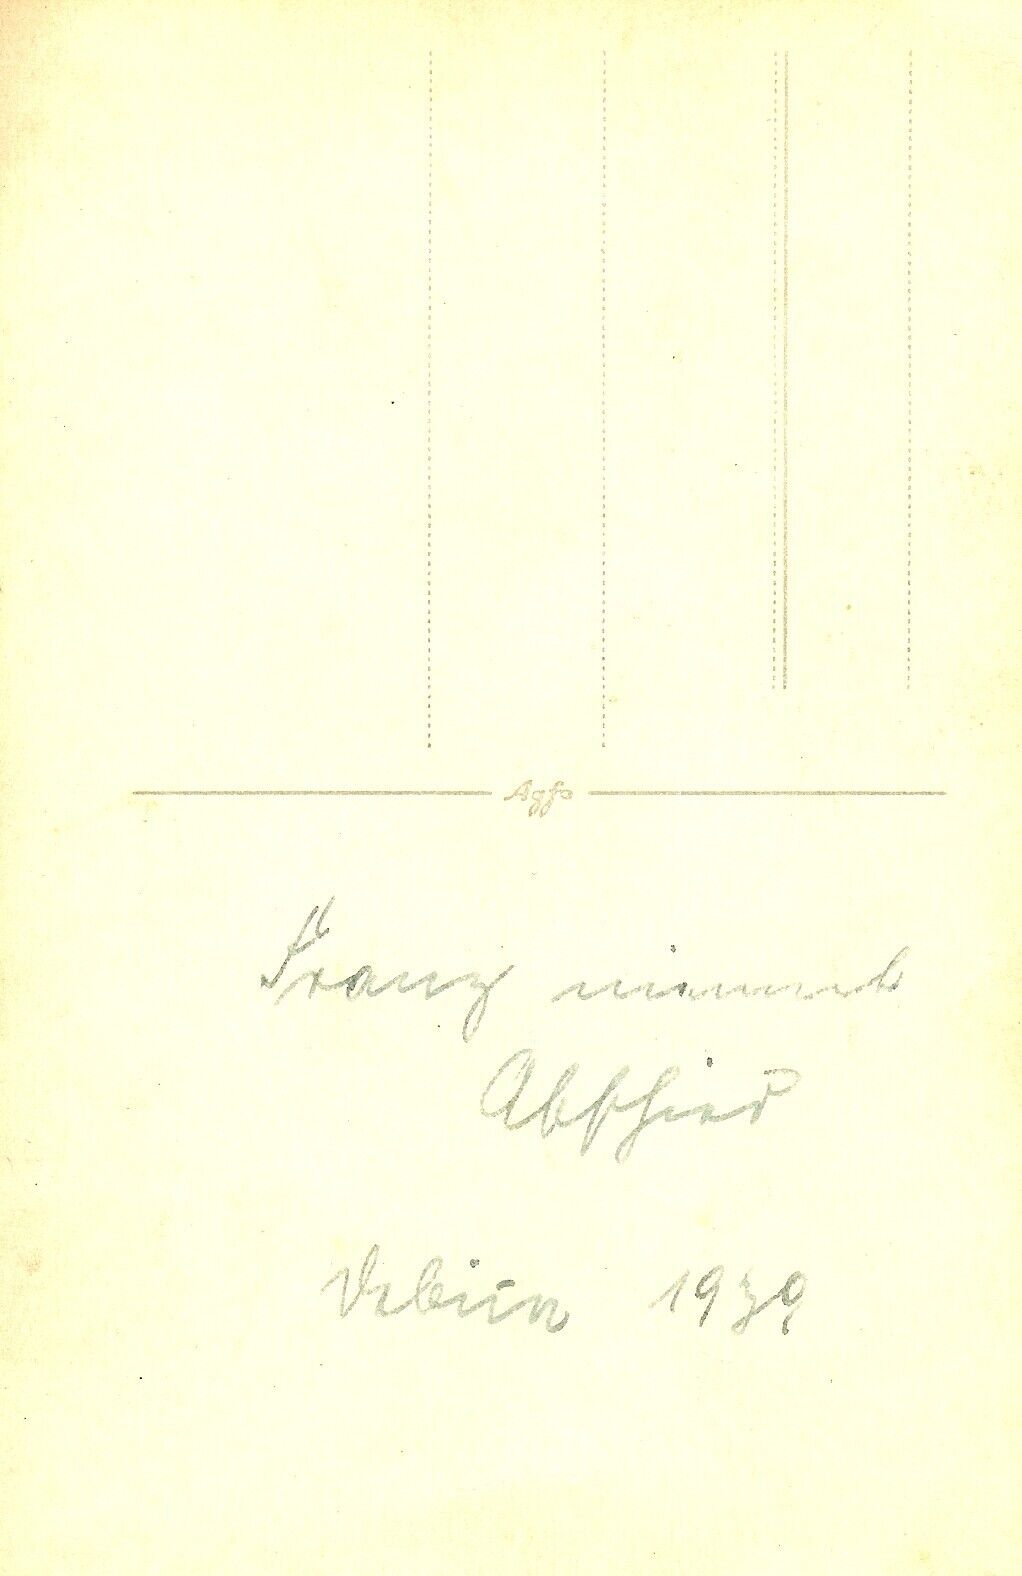 Agfa
Franz nimmt
Abschied
1939